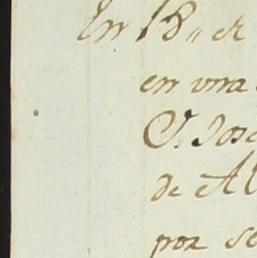 En 18,, de
en una
S.r Jose
de Al
por se